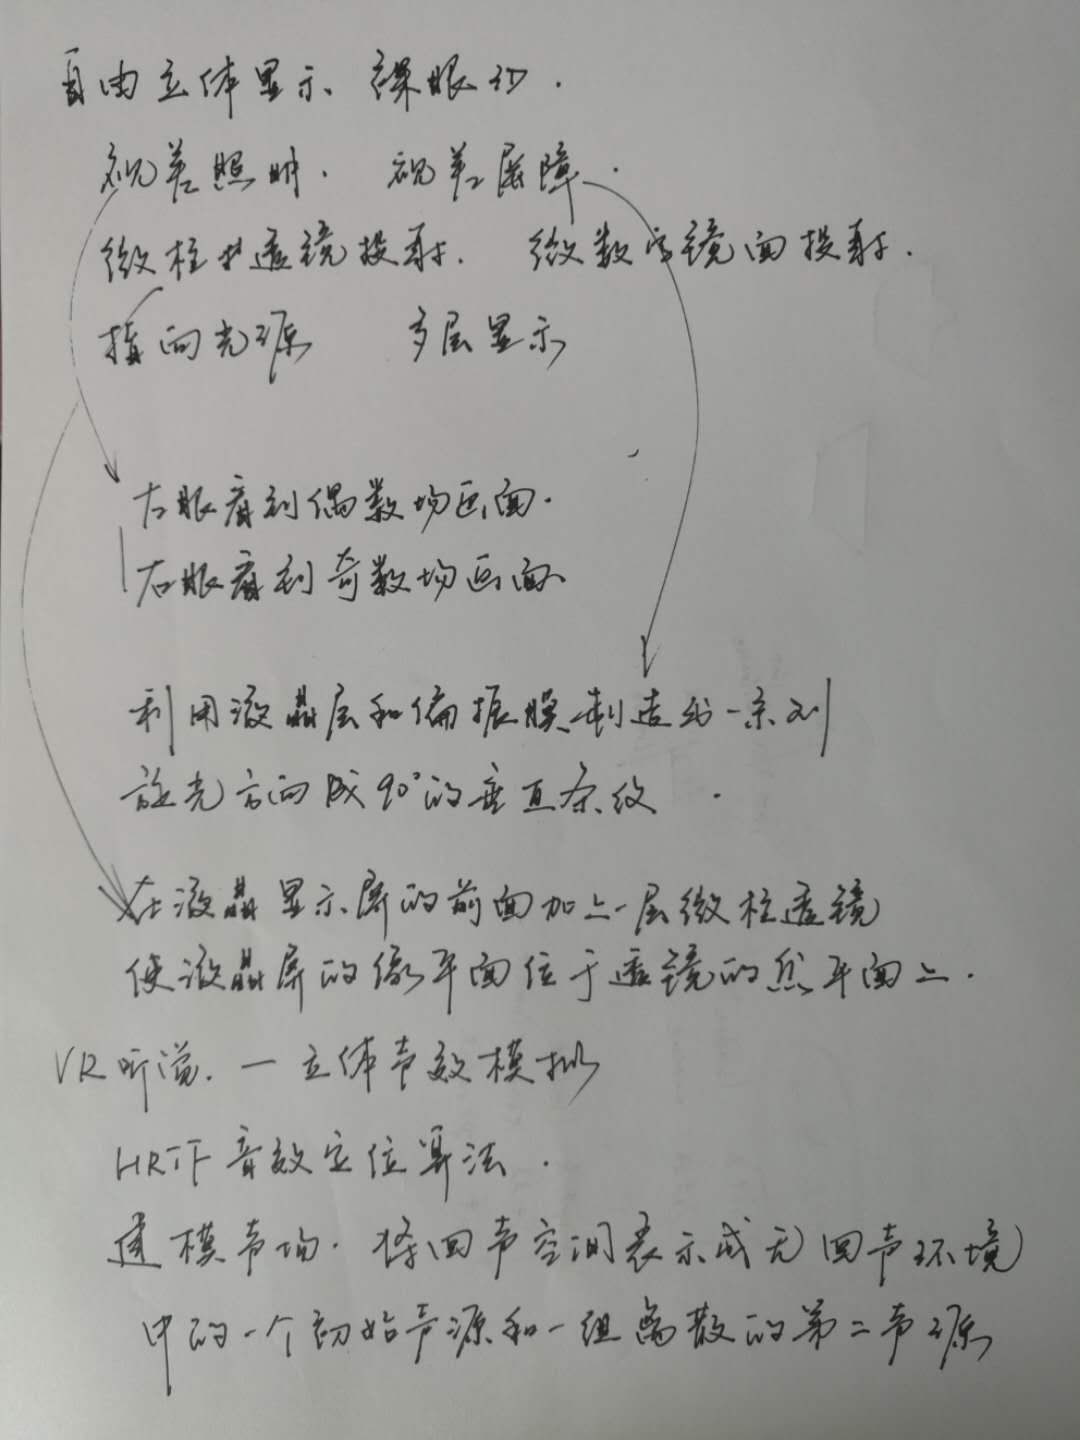 自由立体显示 裸眼3D.
视差照明. 视差屏障.
微柱透镜投射. 微数字镜面投射.
指向光源 多层显示
左眼看到偶数场画面.
右眼看到奇数场画面
利用液晶层和偏振膜制造出一系列
旋光方向成90°的垂直条纹
在液晶显示屏的前面加上一层微柱透镜
使液晶屏的像平面位于透镜的焦平面上.
VR听觉. 一 立体声效模拟
HRTF音效定位算法.
建模声场. 将回声空间表示成无回声环境
中的一个初始声源和一组离散的第二声源